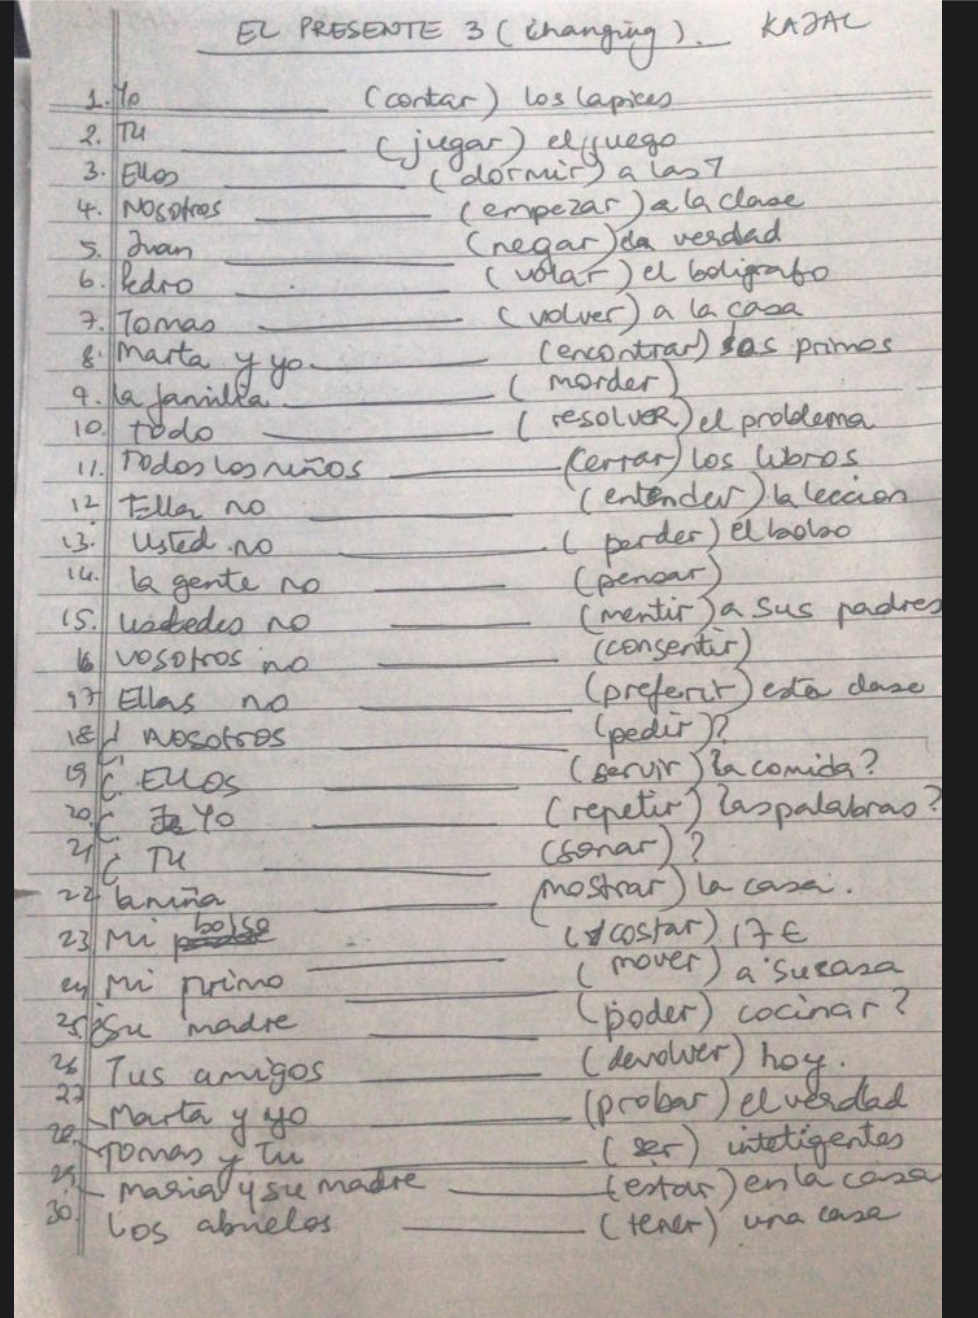 EL PRESENTE 3 (changing). KAJAL
1. Yo ________ (contar) los lapices
2. Tu ________ (jugar) el juego
3. Ellos ________ (dormir) a las 7
4. Nosotros ________ (empezar) a la clase
5. Juan ________ (negar) la verdad
6. Pedro ________ (volar) el boligrafo
7. Tomas ________ (volver) a la casa
8. Marta y yo ________ (encontrar) las primos
9. la familia ________ (morder)
10. todo ________ (resolver) el problema
11. Todos los niños ________ (cerrar) los libros
12 Ella no ________ (entender) la leccion
13. Usted no ________ (perder) el bolso
14. la gente no ________ (pensar)
15. ustedes no ________ (mentir) a sus padres
16 vosotros no ________ (consentir)
17 Ellas no ________ (preferir) esta clase
18 ¿ Nosotros ________ (pedir)?
19 ¿ Ellos ________ (servir) la comida?
20 ¿ Yo ________ (repetir) las palabras?
21 ¿ Tu ________ (sonar)?
22 la niña ________ (mostrar) la casa.
23 Mi bolso ________ (costar) 17 €
24 Mi primo ________ (mover) a su casa
25 ¿Su madre ________ (poder) cocinar?
26 Tus amigos ________ (devolver) hoy.
27 Marta y yo ________ (probar) el verdad
28. Tomas y Tu ________ (ser) inteligentes
29 Maria y su madre ________ (estar) en la casa
30. Los abuelos ________ (tener) una casa